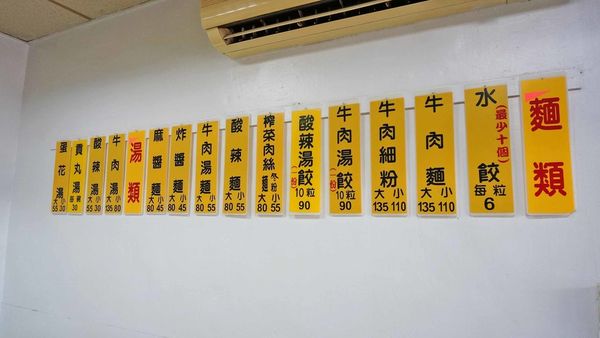 麵類
水餃(最少十個)每粒6
牛肉麵大135小110
牛肉細粉大135小110
牛肉湯餃(一份)10粒90
酸辣湯餃(一份)10粒90
榨菜肉絲麵冬粉大80小55
酸辣麵大80小55
牛肉湯麵大80小55
炸醬麵大80小45
麻醬麵大80小45
湯類
牛肉湯大135小80
酸辣湯大55小30
貢丸湯每碗30
蛋花湯大55小30